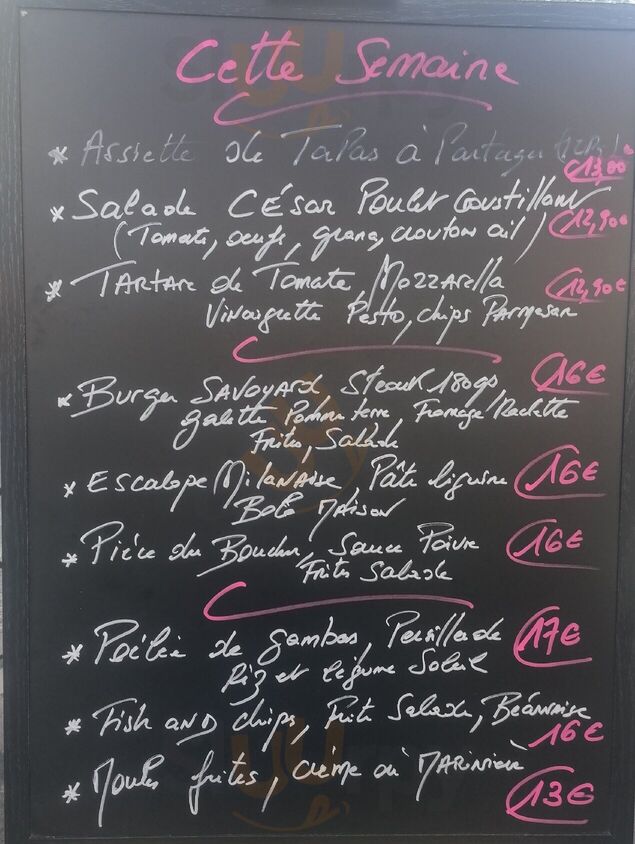 Cette Semaine
* Assiette de Tapas à Partager
13,00€
* Salade César Poulet Croustillant
(Tomate, oeufs, grana, crouton ail) 12,90€
* Tartare de Tomate, Mozzarella 12,90€
Vinaigrette Pesto, chips Parmesan
* Burger Savoyard Steak 180gr 16€
galette Pomme terre Fromage Raclette
Frites, Salade
* Escalope Milanaise Pâte liguine 16€
Bolo Maison
* Pièce du Boucher, Sauce Poivre 16€
Frites Salade
* Poêlée de gambas, Persillade 17€
Riz et légume Soleil
* Fish and chips, Frite Salade, Béarnaise
16€
* Moules frites, crème ou Marinière
13€